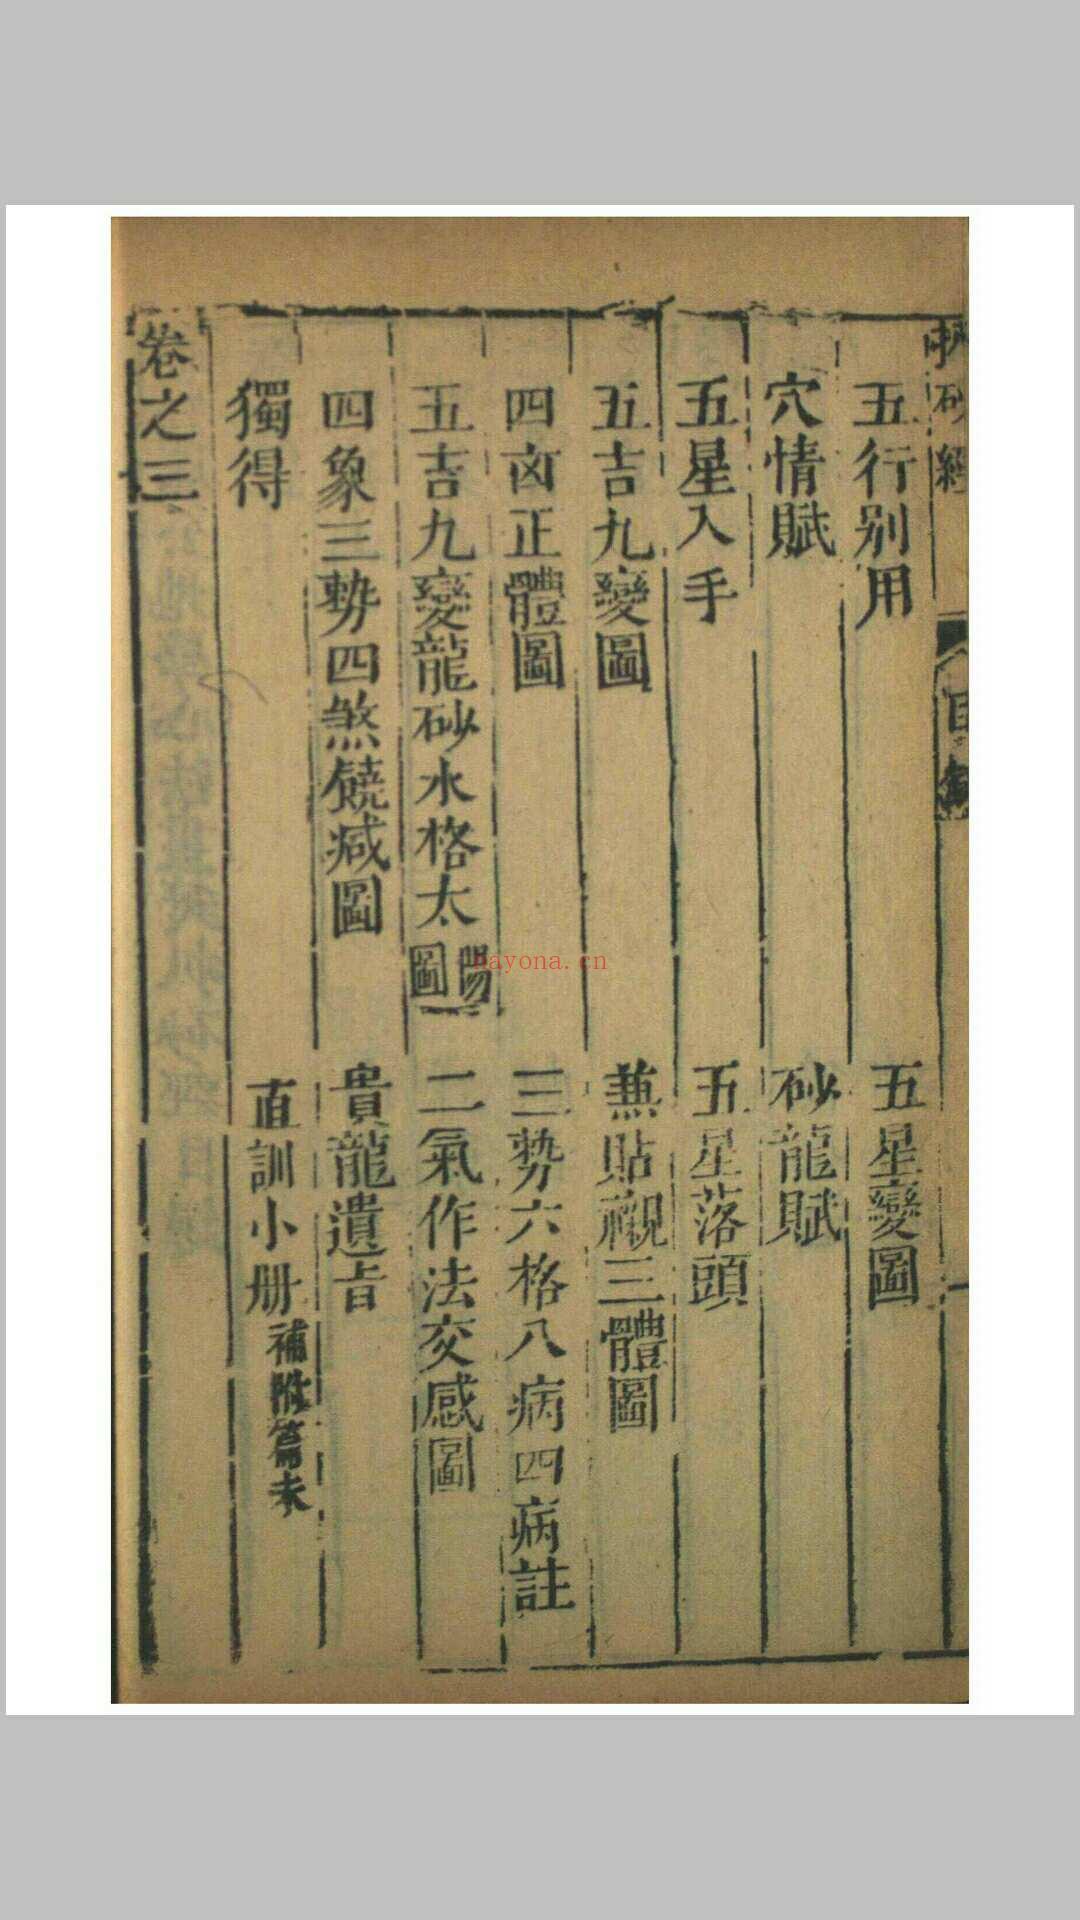 砂經
目錄
五行別用 五星變圖
穴情賦 砂龍賦
五星入手 五星落頭
五吉九變圖 兼貼襯三體圖
四凶正體圖 三勢六格八病四病註
五吉九變龍砂水格太陽圖 二氣作法交感圖
四象三勢四煞饒减圖 貴龍遺旨
獨得 直訓小册補附篇末
卷之三
nayona.cn